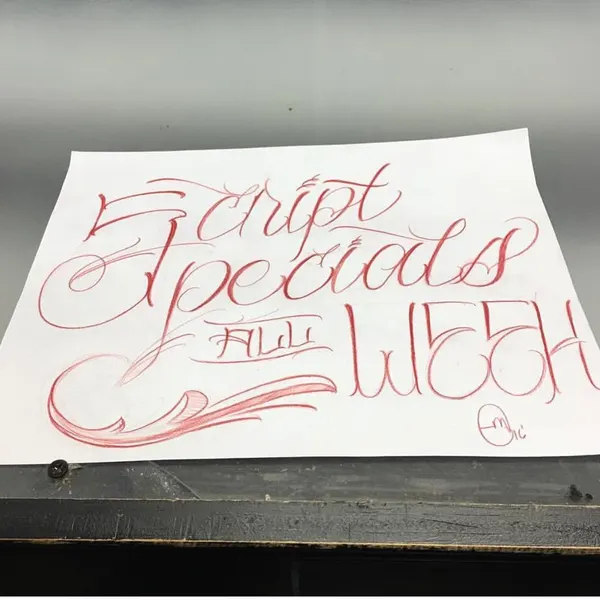 Script
Specials
ALL WEEK